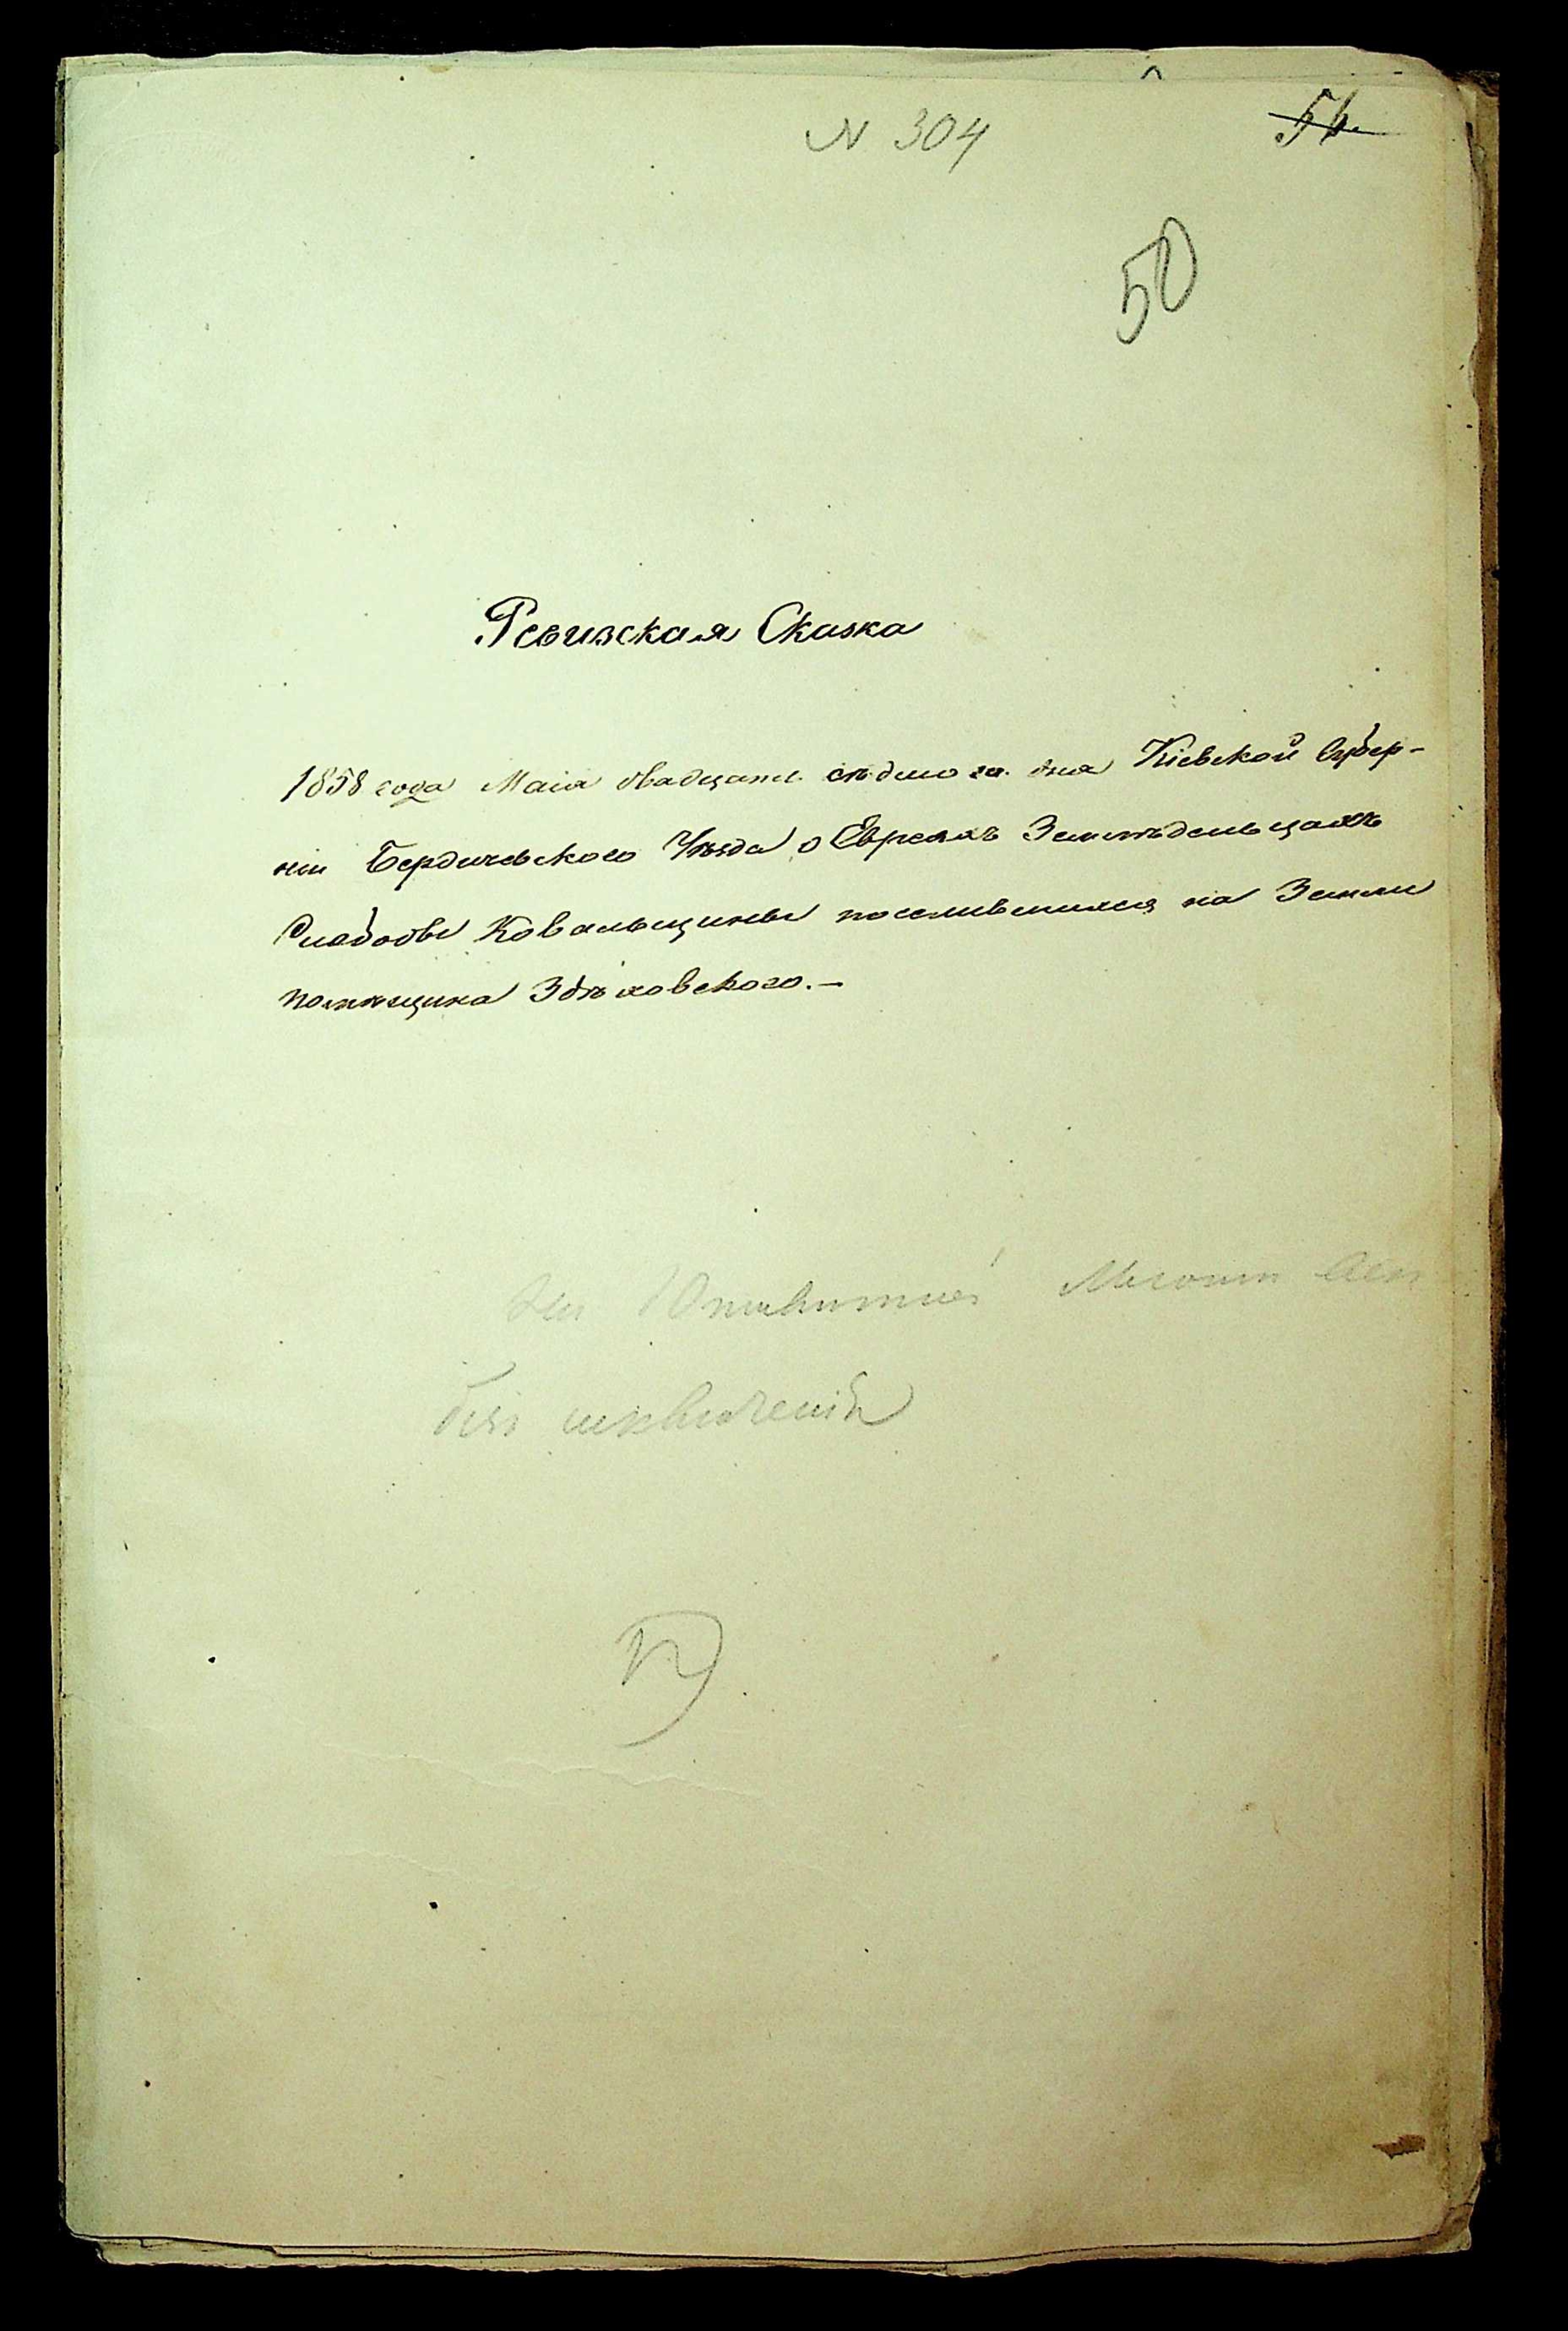 N 304
56.
50
Ревизская Сказка
1858 года Маія двадцать седмого дня Кіевской Губер-
ніи Бердичевского Уѣзда о Евреяхъ Земледѣльцахъ
Слободы Ковальщины поселившихся на Земли
помѣщика Здѣховского.-
без